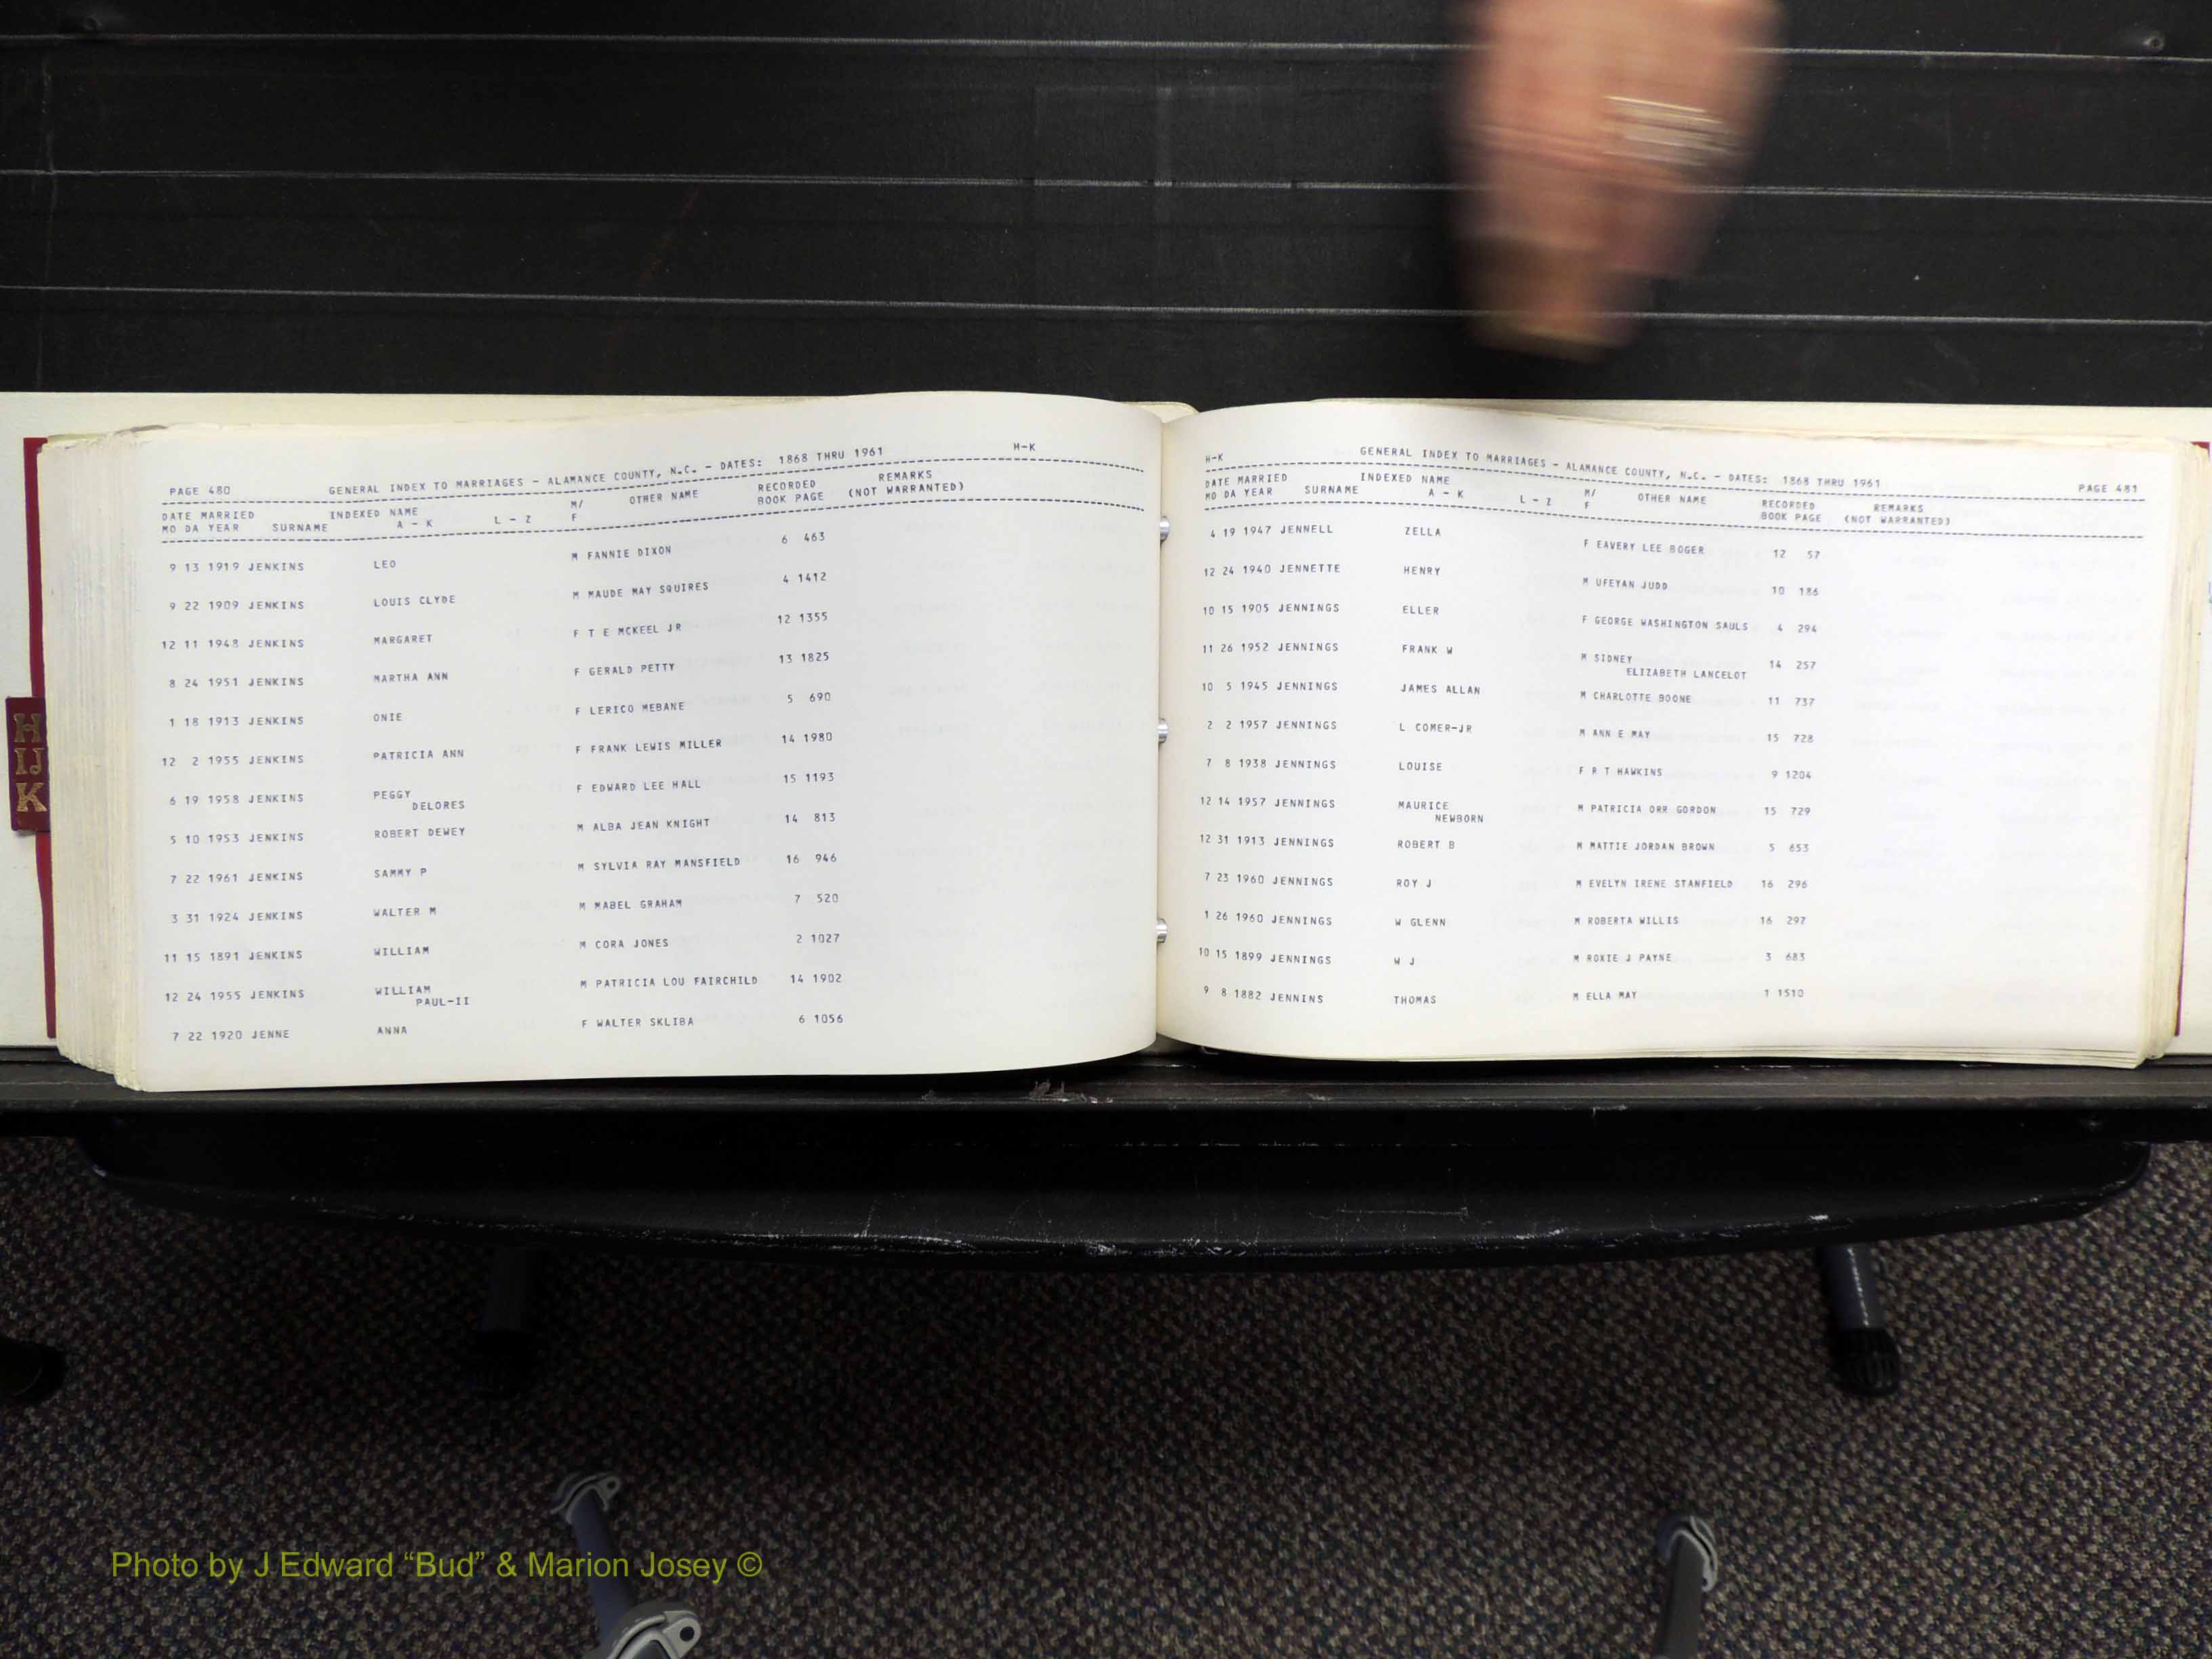 H
IJ
K
PAGE 480 GENERAL INDEX TO MARRIAGES - ALAMANCE COUNTY, N.C. - DATES: 1868 THRU 1961 H-K
DATE MARRIED INDEXED NAME M/ OTHER NAME RECORDED REMARKS
MO DA YEAR SURNAME A - K L - Z F BOOK PAGE (NOT WARRANTED)
9 13 1919 JENKINS LEO M FANNIE DIXON 6 463
9 22 1909 JENKINS LOUIS CLYDE M MAUDE MAY SQUIRES 4 1412
12 11 1948 JENKINS MARGARET F T E MCKEEL JR 12 1355
8 24 1951 JENKINS MARTHA ANN F GERALD PETTY 13 1825
1 18 1913 JENKINS ONIE F LERICO MEBANE 5 690
12 2 1955 JENKINS PATRICIA ANN F FRANK LEWIS MILLER 14 1980
6 19 1958 JENKINS PEGGY F EDWARD LEE HALL 15 1193
DELORES
5 10 1953 JENKINS ROBERT DEWEY M ALBA JEAN KNIGHT 14 813
7 22 1961 JENKINS SAMMY P M SYLVIA RAY MANSFIELD 16 946
3 31 1924 JENKINS WALTER M M MABEL GRAHAM 7 520
11 15 1891 JENKINS WILLIAM M CORA JONES 2 1027
12 24 1955 JENKINS WILLIAM M PATRICIA LOU FAIRCHILD 14 1902
PAUL-II
7 22 1920 JENNE ANNA F WALTER SKLIBA 6 1056
H-K GENERAL INDEX TO MARRIAGES - ALAMANCE COUNTY, N.C. - DATES: 1868 THRU 1961 PAGE 481
DATE MARRIED INDEXED NAME M/ OTHER NAME RECORDED REMARKS
MO DA YEAR SURNAME A - K L - Z F BOOK PAGE (NOT WARRANTED)
4 19 1947 JENNELL ZELLA F EAVERY LEE BOGER 12 57
12 24 1940 JENNETTE HENRY M UFEYAN JUDD 10 186
10 15 1905 JENNINGS ELLER F GEORGE WASHINGTON SAULS 4 294
11 26 1952 JENNINGS FRANK W M SIDNEY 14 257
ELIZABETH LANCELOT
10 5 1945 JENNINGS JAMES ALLAN M CHARLOTTE BOONE 11 737
2 2 1957 JENNINGS L COMER-JR M ANN E MAY 15 728
7 8 1938 JENNINGS LOUISE F R T HAWKINS 9 1204
12 14 1957 JENNINGS MAURICE M PATRICIA ORR GORDON 15 729
NEWBORN
12 31 1913 JENNINGS ROBERT B M MATTIE JORDAN BROWN 5 653
7 23 1960 JENNINGS ROY J M EVELYN IRENE STANFIELD 16 296
1 26 1960 JENNINGS W GLENN M ROBERTA WILLIS 16 297
10 15 1899 JENNINGS W J M ROXIE J PAYNE 3 683
9 8 1882 JENNINS THOMAS M ELLA MAY 1 1510
Photo by J Edward “Bud” & Marion Josey ©